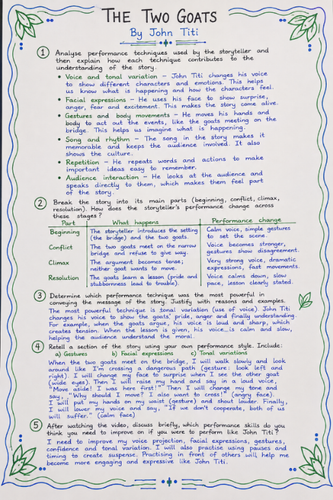 THE TWO GOATS
By John Titi
1 Analyse performance techniques used by the storyteller and
then explain how each technique contributes to the
understanding of the story.
• Voice and tonal variation - John Titi changes his voice
to show different characters and emotions. This helps
us know what is happening and how the characters feel.
• Facial expressions - He uses his face to show surprise,
anger, fear and excitement. This makes the story come alive.
• Gestures and body movements - He moves his hands and
body to act out the events, like the goats meeting on the
bridge. This helps us imagine what is happening.
• Song and rhythm - The song in the story makes it
memorable and keeps the audience involved. It also
shows the culture.
• Repetition - He repeats words and actions to make
important ideas easy to remember.
• Audience interaction - He looks at the audience and
speaks directly to them, which makes them feel part
of the story.
2 Break the story into its main parts (beginning, conflict, climax,
resolution). How does the storyteller's performance change across
these stages?
Part What happens Performance change
Beginning The storyteller introduces the setting (the bridge) and the two goats. Calm voice, simple gestures to set the scene.
Conflict The two goats meet on the narrow bridge and refuse to give way. Voice becomes stronger, gestures show disagreement.
Climax The argument becomes tense; neither goat wants to move. Very strong voice, dramatic expressions, fast movements.
Resolution The goats learn a lesson (pride and stubbornness lead to trouble). Voice calms down, slow pace, lesson clearly stated.
3 Determine which performance technique was the most powerful in
conveying the message of the story. Justify with reasons and examples.
The most powerful technique is tonal variation (use of voice). John Titi
changes his voice to show the goats' pride, anger and finally understanding.
For example, when the goats argue, his voice is loud and sharp, which
creates tension. When the lesson is given, his voice is calm and slow,
helping the audience understand the moral.
4 Retell a section of the story using your own performance style. Include:
a) Gestures b) Facial expressions c) Tonal variations
When the two goats meet on the bridge, I will walk slowly and look
around like I'm crossing a dangerous path (gesture: look left and
right). I will change my face to surprise when I see the other goat
(wide eyes). Then I will raise my hand and say in a loud voice,
"Move aside! I was here first!" Then I will change my tone and
say, "Why should I move? I also want to cross!" (angry face).
I will put my hands on my waist (gesture) and shout louder. Finally,
I will lower my voice and say, "If we don't cooperate, both of us
will suffer." (calm face)
5 After watching the video, discuss briefly, which performance skills do you
think you need to improve on if you were to perform like John Titi?
I need to improve my voice projection, facial expressions, gestures,
confidence and tonal variation. I will also practise using pauses and
timing to create suspense. Practising in front of others will help me
become more engaging and expressive like John Titi.